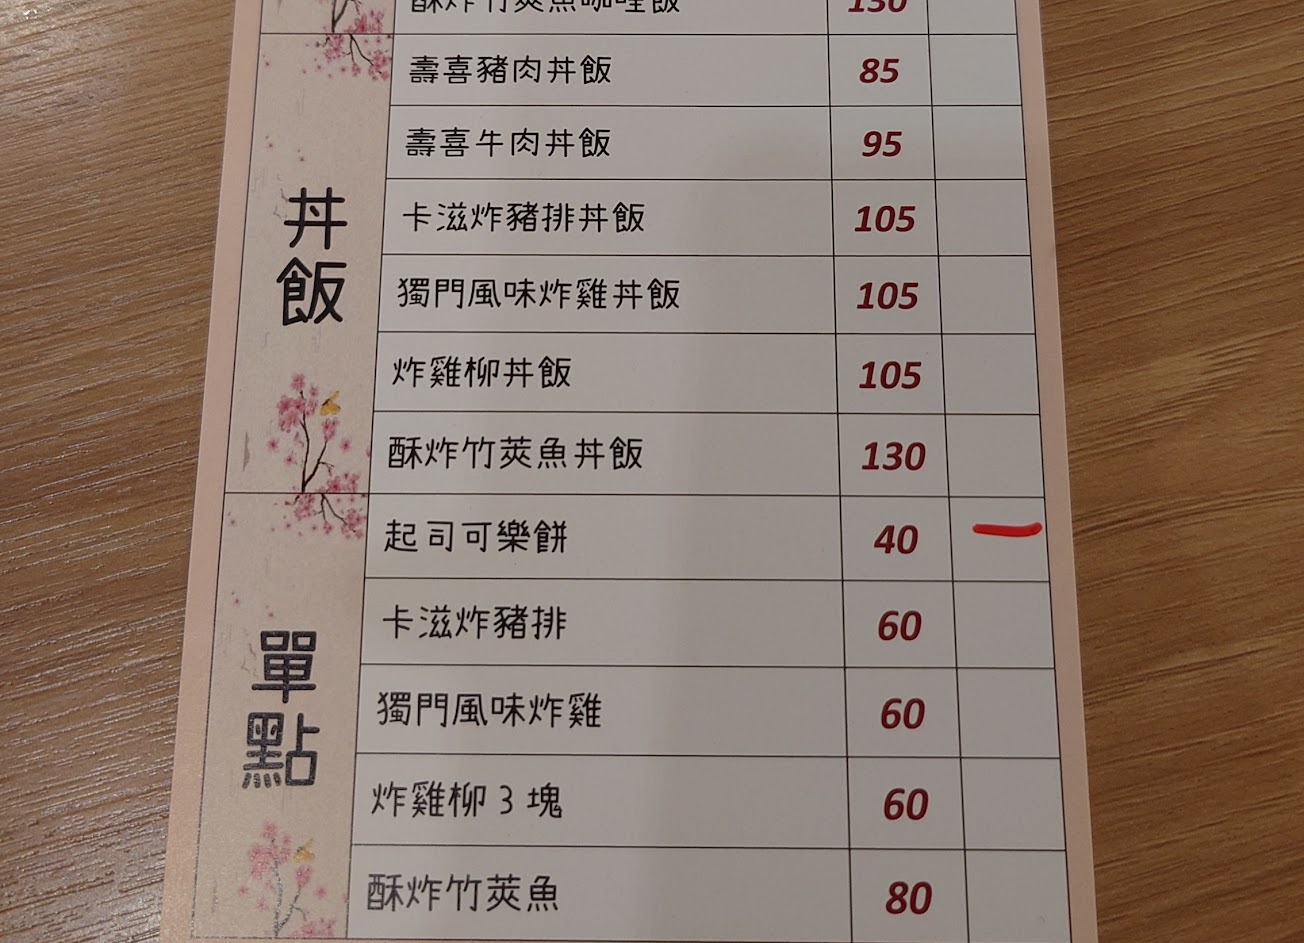 酥炸竹莢魚咖哩飯 130
丼飯
壽喜豬肉丼飯 85
壽喜牛肉丼飯 95
卡滋炸豬排丼飯 105
獨門風味炸雞丼飯 105
炸雞柳丼飯 105
酥炸竹莢魚丼飯 130
單點
起司可樂餅 40 一
卡滋炸豬排 60
獨門風味炸雞 60
炸雞柳 3 塊 60
酥炸竹莢魚 80